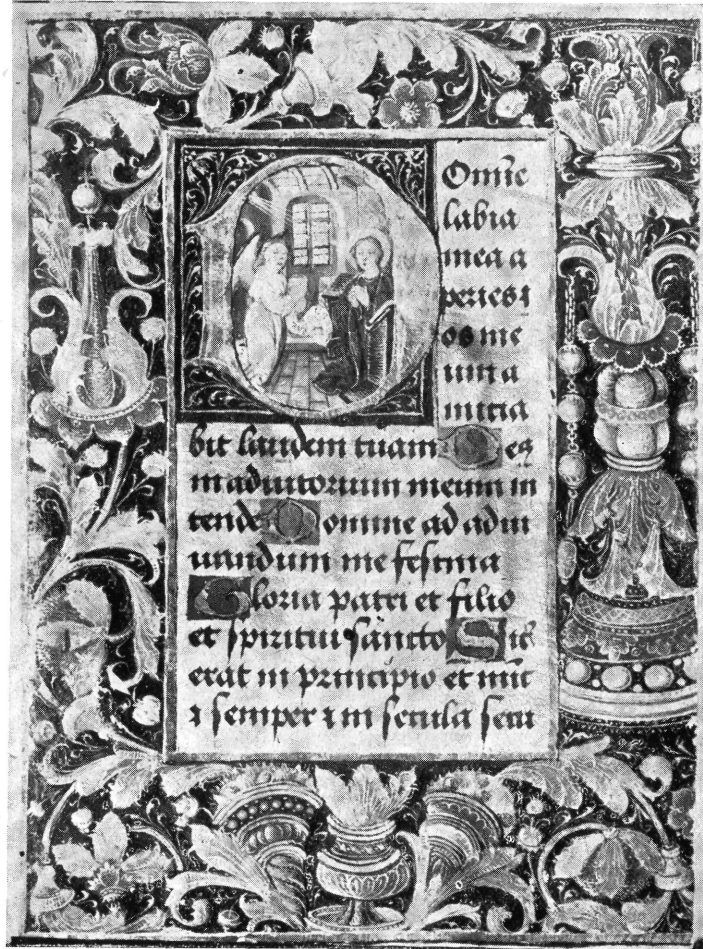 Domīe
labia
mea a
peries ⁊
os me
um a
nncia
bit laudem tuam Deꝰ
in adiutorium meum in
tende Domine ad adiu
uandum me festina
Gloria patri et filio
et spiritui sancto Sic̄
erat in principio et nūc
⁊ semper ⁊ in secula secu